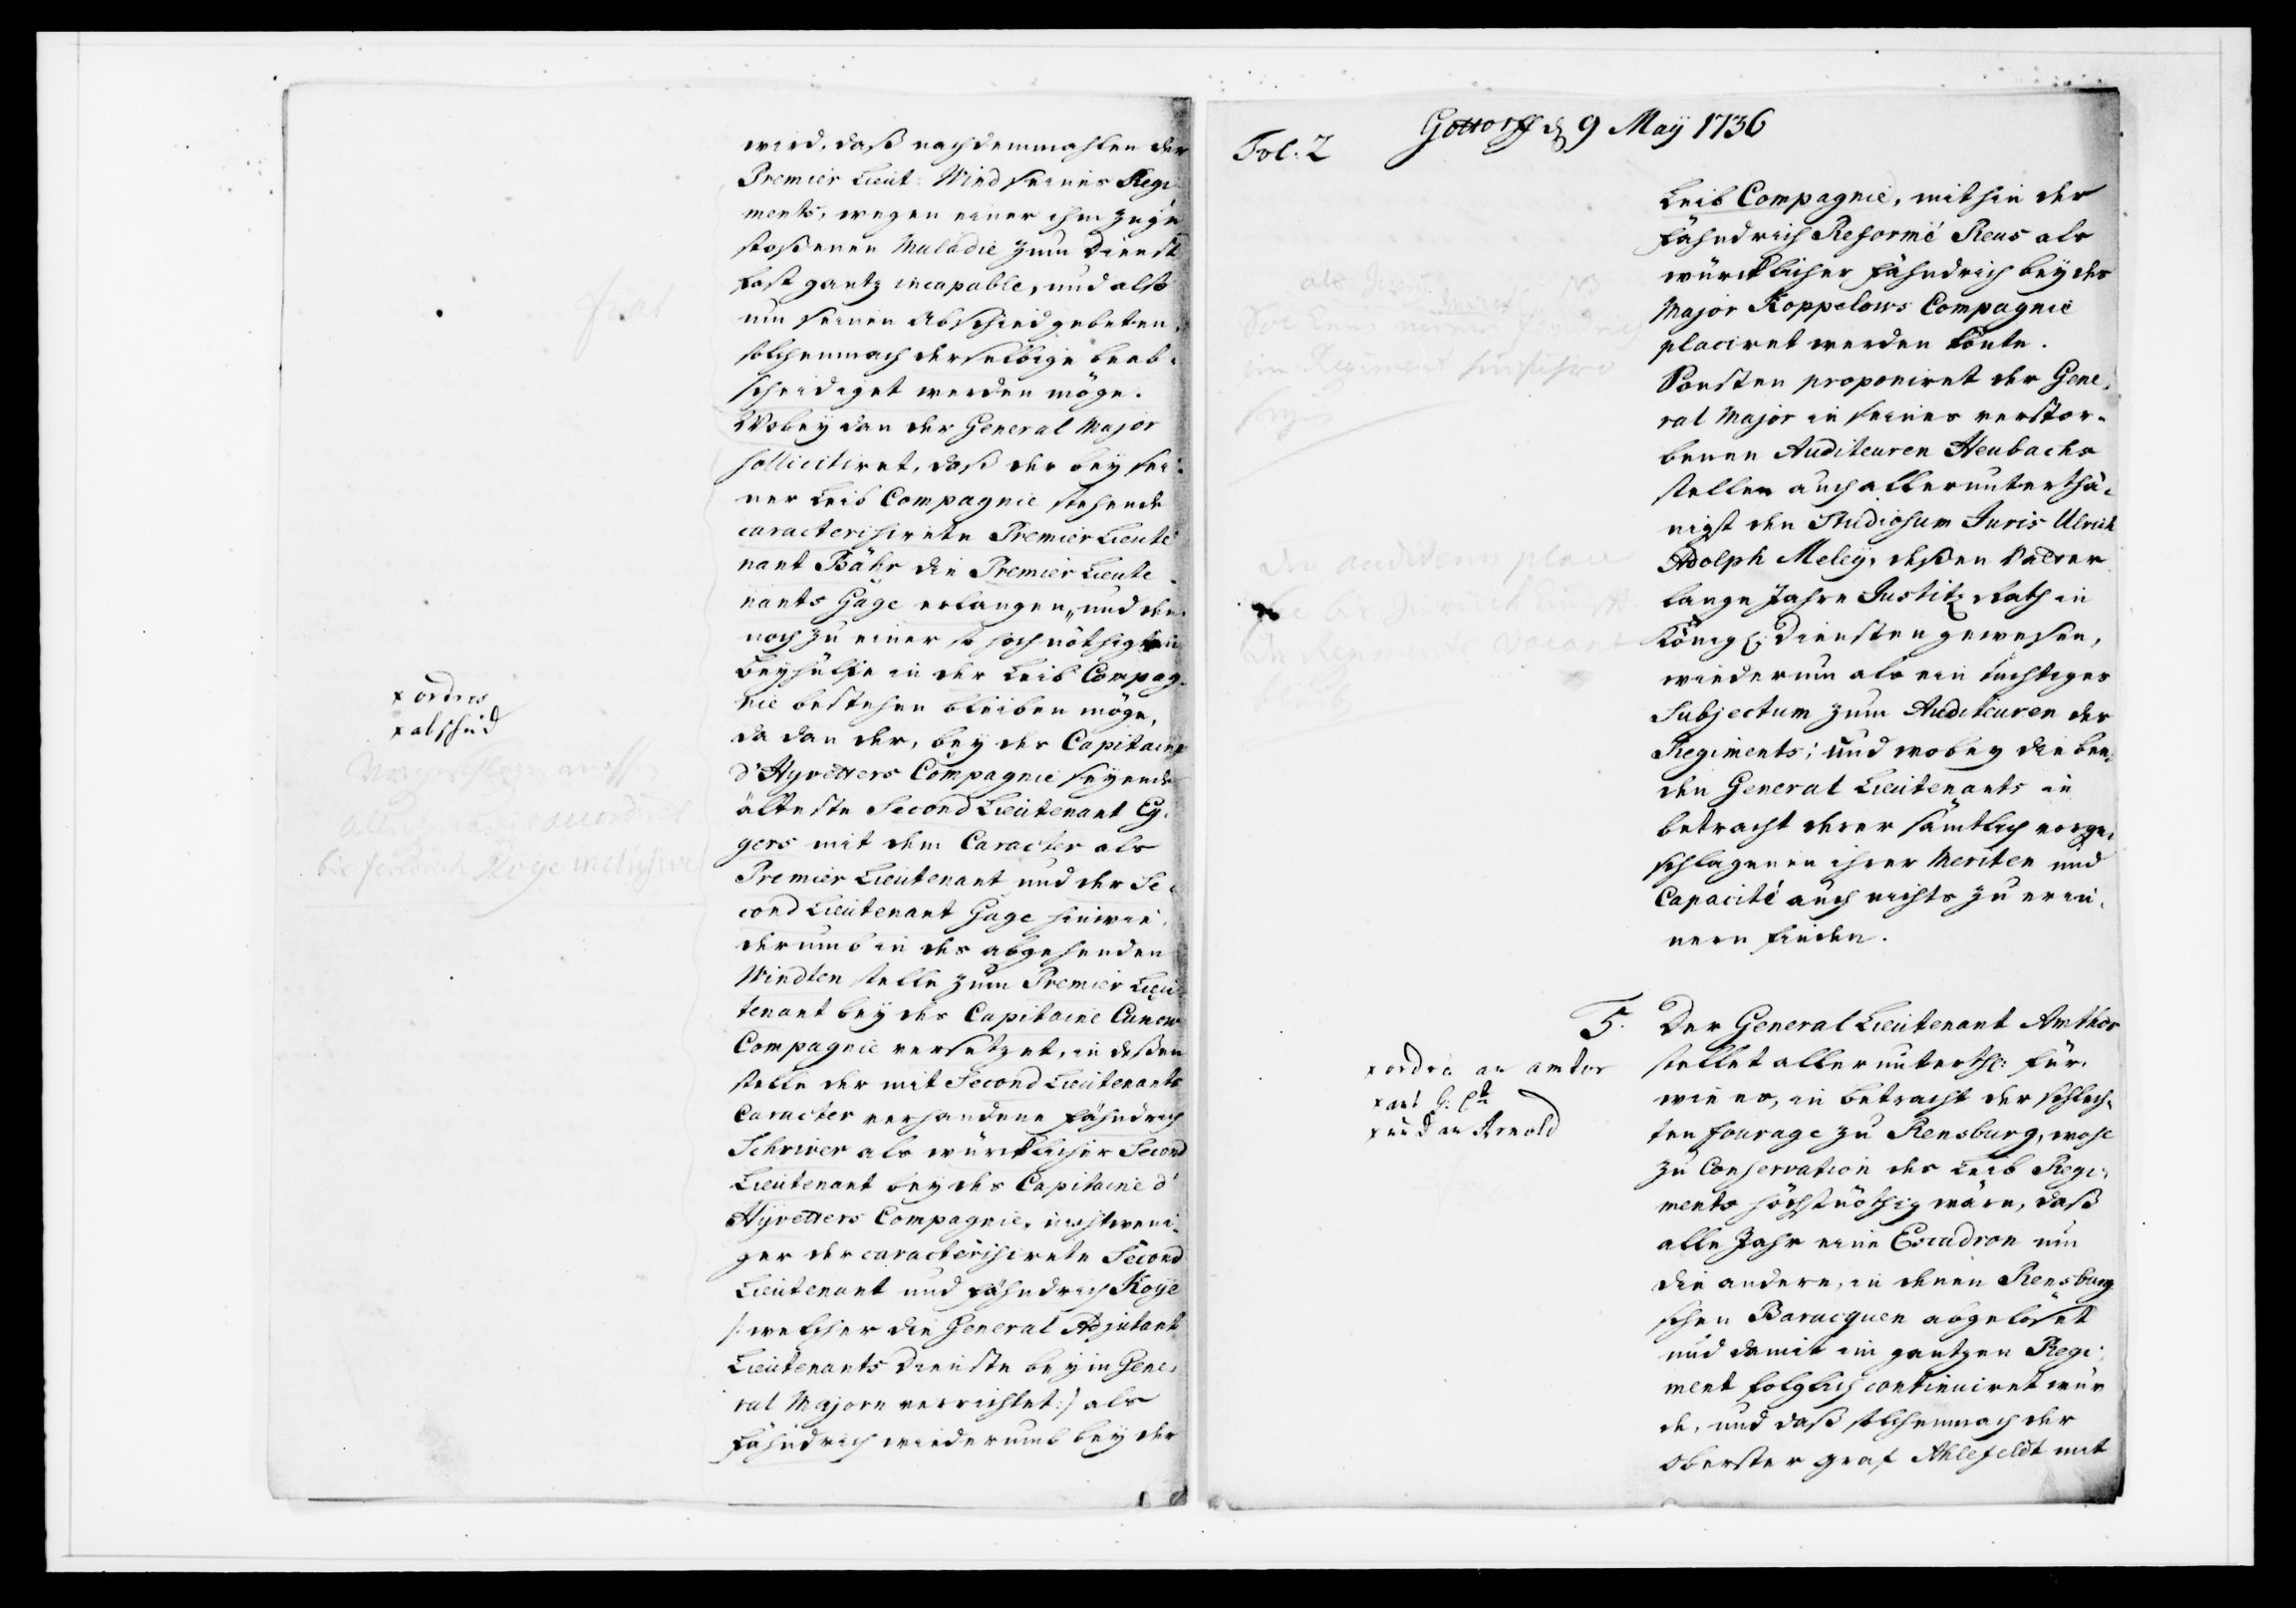 wird, daß nachdemmahlen der
Premier Lieut: Wind seines Regi-
ments, wegen einer ihm zuge-
stoßenen Maladie zum Dienst
fast gantz incapable, und also
um seinen Abschied gebeten,
solchemnach derselbige beab-
scheidiget werden möge.
Wobey dan der General Major
sollicitiret, daß der bey sei-
ner Leib Compagnie stehende
caracterisirete Premier Lieute-
nant Bähr die Premier Lieute-
nants Gage erlangen, und den-
noch zu einer so hochnöthigen
Beyhülffe in der Leib Compag-
nie bestehen bleiben möge,
da dan der, bey des Capitaine
d'Hyvetters Compagnie seyende
älteste Second Lieutenant Eg-
gers mit dem Caracter als
Premier Lieutenant und der Se-
cond Lieutenant Gage hinwie-
derumb in des abgehenden
Windten stelle zum Premier Lieu-
tenant bey des Capitaine Cunow
Compagnie versetzet, in deßen
stelle der mit Second Lieutenants
Caracter verhandene Fähndrich
Schriver als würcklicher Second
Lieutenant bey des Capitaine d'
Hyvetters Compagnie, nichtweni-
ger der caracterisirete Second
Lieutenant und Fähndrich Koye
/: welcher die General Adjutant
Lieutenants Dienste beym Gene-
ral Majorn verrichtet :/ als
Fähndrich wiederumb bey der
fiat
x ordres
x abschied
allen
bis Fendrich Koye inclusive
Gottorff d 9 Maÿ 1736
Fol: 2
Leib Compagnie, mithin der
Fähndrich Reformé Reus als
würcklicher Fähndrich bey des
Major Koppelows Compagnie
placiret werden könte.
Sonsten proponiret der Gene-
ral Major in seines verstor-
benen Auditeuren Heubachs
stellen auch allerunterthä-
nigst den Studiosum Juris Ulrich
Adolph Meley, deßen Vatter
lange Jahre Justitz Rath in
Königl: Diensten gewesen,
wiederum als ein tüchtiges
Subjectum zum Auditeuren des
Regiments; und wobey die bey-
den General Lieutenants in
betracht derer sämtlich vorge-
schlagenen ihrer Meriten und
Capacité auch nichts zu erin-
nern finden.
im Regiment
den auditeurs place
Regimente vacant
5.
Der General Lieutenant Amthor
stellet allerunterth: für,
wie es, in betracht der schlech-
ten fourage zu Rensburg, wohl
zu Conservation des Leib Regi-
ments höchstnöthig wäre, daß
alle Jahr eine Escadron um
die andere, in denen Rensburg-
schen Baracquen abgelöset
und damit im gantzen Regi-
ment folglich continuiret wür-
de, und daß solchemnach der
Oberster Graf Ahlefeldt mit
x ordre an amtor
x und an Arnold